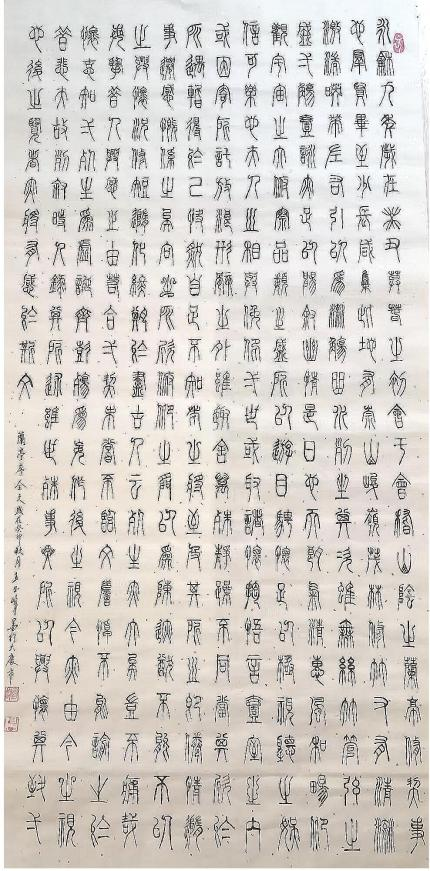 永和九年歲在癸丑暮春之初會于會稽山陰之蘭亭修禊事
也羣賢畢至少長咸集此地有崇山峻嶺茂林修竹又有清流
激湍映帶左右引以為流觴曲水列坐其次雖無絲竹管弦之
盛一觴一詠亦足以暢敘幽情是日也天朗氣清惠風和暢仰
觀宇宙之大俯察品類之盛所以遊目騁懷足以極視聽之娛
信可樂也夫人之相與俯仰一世或取諸懷抱悟言一室之內
或因寄所託放浪形骸之外雖趣舍萬殊靜躁不同當其欣於
所遇暫得於己快然自足不知老之將至及其所之既倦情隨
事遷感慨係之矣向之所欣俯仰之間以為陳迹猶不能不以
之興懷況修短隨化終期於盡古人云死生亦大矣豈不痛哉
每覽昔人興感之由若合一契未嘗不臨文嗟悼不能喻之於
懷固知一死生為虛誕齊彭殤為妄作後之視今亦由今之視
昔悲夫故列敘時人錄其所述雖世殊事異所以興懷其致一
也後之覽者亦將有感於斯文
蘭亭序全文歲在癸卯秋月於大慶市